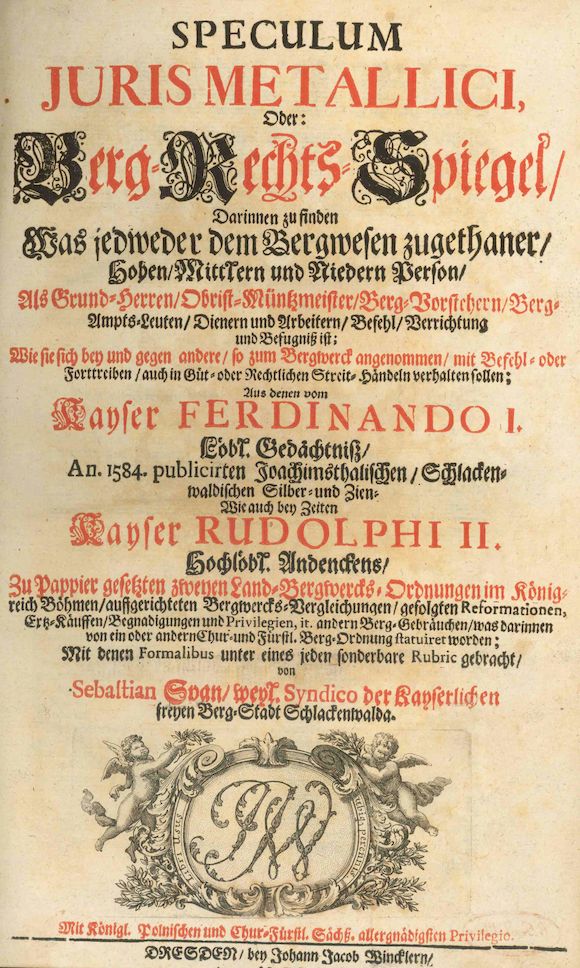 SPECULUM
JURIS METALLICI,
Oder:
Berg-Rechts-Spiegel/
Darinnen zu finden
Was jedweder dem Bergwesen zugethaner/
Hohen/Mittlern und Niedern Person/
Als Grund-Herren/Obrist-Müntzmeister/Berg-Vorstehern/Berg-
Ampts-Leuten/Dienern und Arbeitern/Befehl/Verrichtung
und Befugniß ist;
Wie sie sich bey und gegen andere/so zum Bergwerck angenommen/mit Befehl- oder
Forttreiben/auch in Güt- oder Rechtlichen Streit-Händeln verhalten sollen;
Aus denen vom
Kayser FERDINANDO I.
Löbl. Gedächtniß/
An. 1584. publicirten Joachimsthalischen/Schlacken-
waldischen Silber- und Zien-
Wie auch bey Zeiten
Kayser RUDOLPHI II.
Hochlöbl. Andenckens/
Zu Pappier gesetzten zweyen Land-Bergwercks-Ordnungen im König-
reich Böhmen/auffgerichteten Bergwercks-Vergleichungen/gefolgten Reformationen,
Ertz-Käuffen/Begnadigungen und Privilegien, it. andern Berg-Gebräuchen/was darinnen
von ein oder andern Chur- und Fürstl. Berg-Ordnung statuiret worden;
Mit denen Formalibus unter eines jeden sonderbare Rubric gebracht/
von
Sebastian Span/weyl. Syndico der Kayserlichen
freyen Berg-Stadt Schlackenwalda.
Mit Königl. Polnischen und Chur-Fürstl. Sächß. allergnädigsten Privilegio.
DRESDEN/bey Johann Jacob Wincklern/